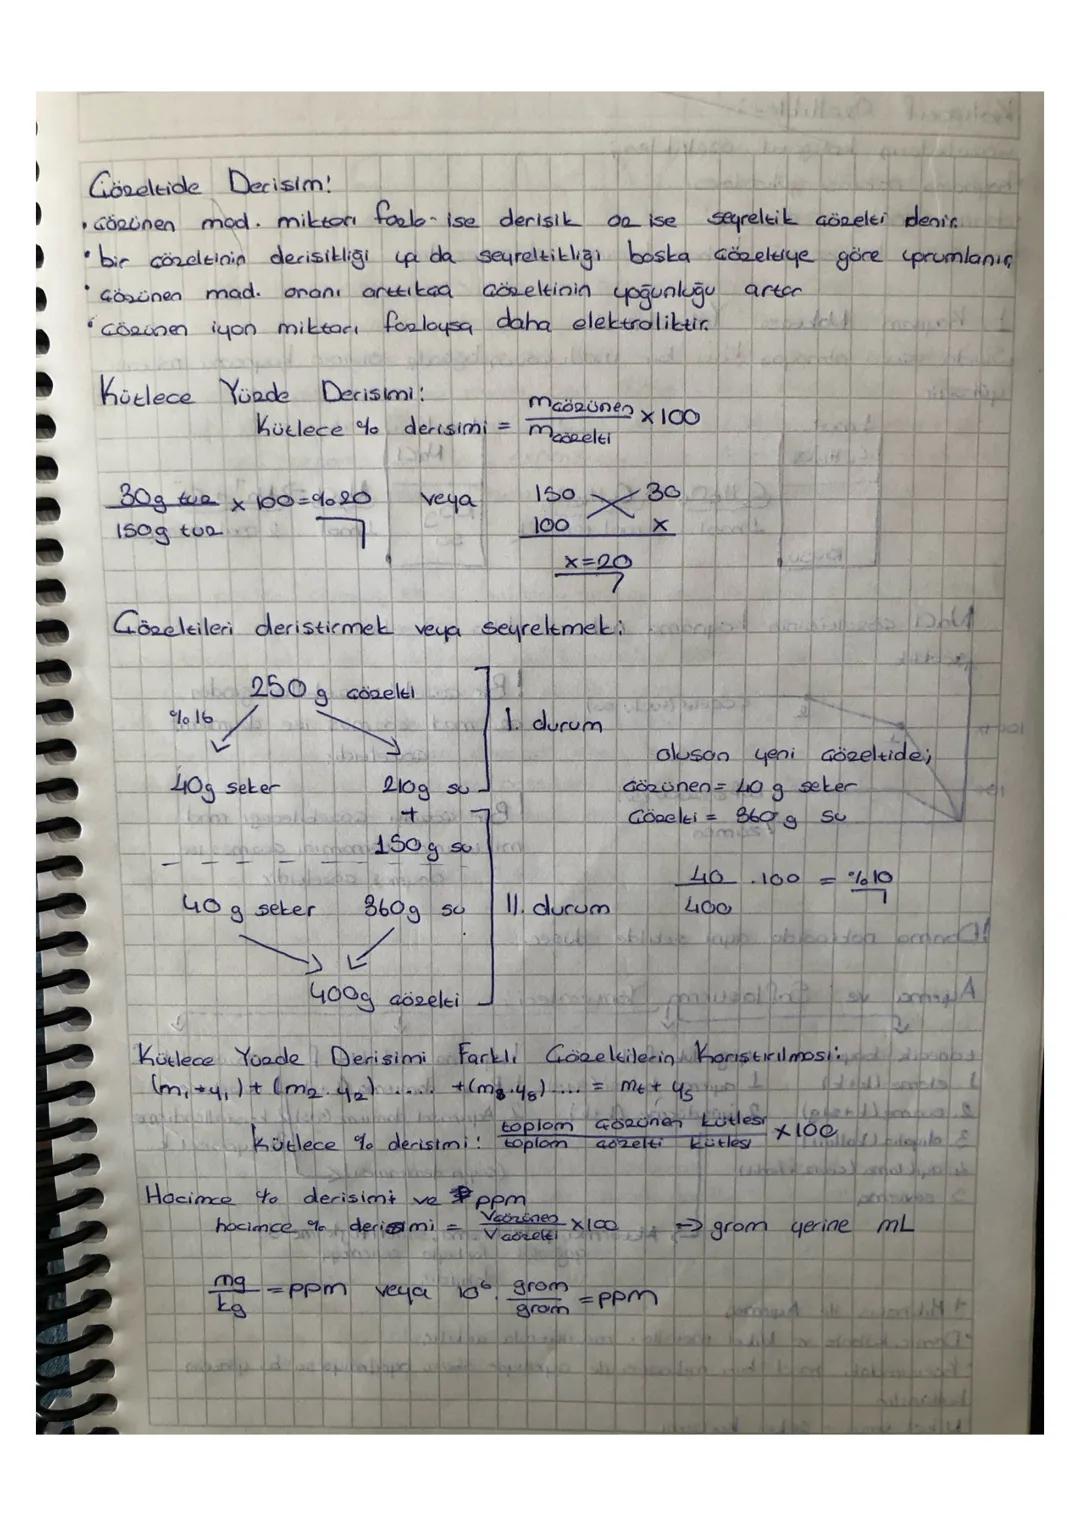 Çözeltide Derişim!
• çözünen mad. miktarı fazla ise derişik az ise seyreltik çözelti denir.
• bir çözeltinin derişikliği ya da seyreltikliği başka çözeltiye göre yorumlanır
• çözünen mad. oranı arttıkça çözeltinin yoğunluğu artar
• çözünen iyon miktarı fazlaysa daha elektroliktir.
Kütlece Yüzde Derişimi:
Kütlece % derişimi = mçözünen / mçözelti x 100
30g tuz / 150g tuz x 100 = %20 veya 150 30
100 x
x=20
Çözeltileri deriştirmek veya seyreltmek:
250 g çözelti
%16 I. durum
oluşan yeni çözeltide;
40g şeker 210g su çözünen = 40 g şeker
+ Çözelti = 360 g su
150 g su
40 / 400 . 100 = %10
40 g şeker 360g su II. durum
400g çözelti
Kütlece Yüzde Derişimi Farklı Çözeltilerin Karıştırılması:
(m₁+y₁) + (m₂.y₂) .... +(m₈.y₈).... = mt + ys
Kütlece % derişimi: toplam çözünen kütlesi / toplam çözelti kütlesi x100
Hacimce % derişimi ve ppm
hacimce % derişimi = Vçözünen / Vçözelti x100 ⇒ gram yerine mL
mg / kg = ppm veya 10⁶. gram / gram = ppm